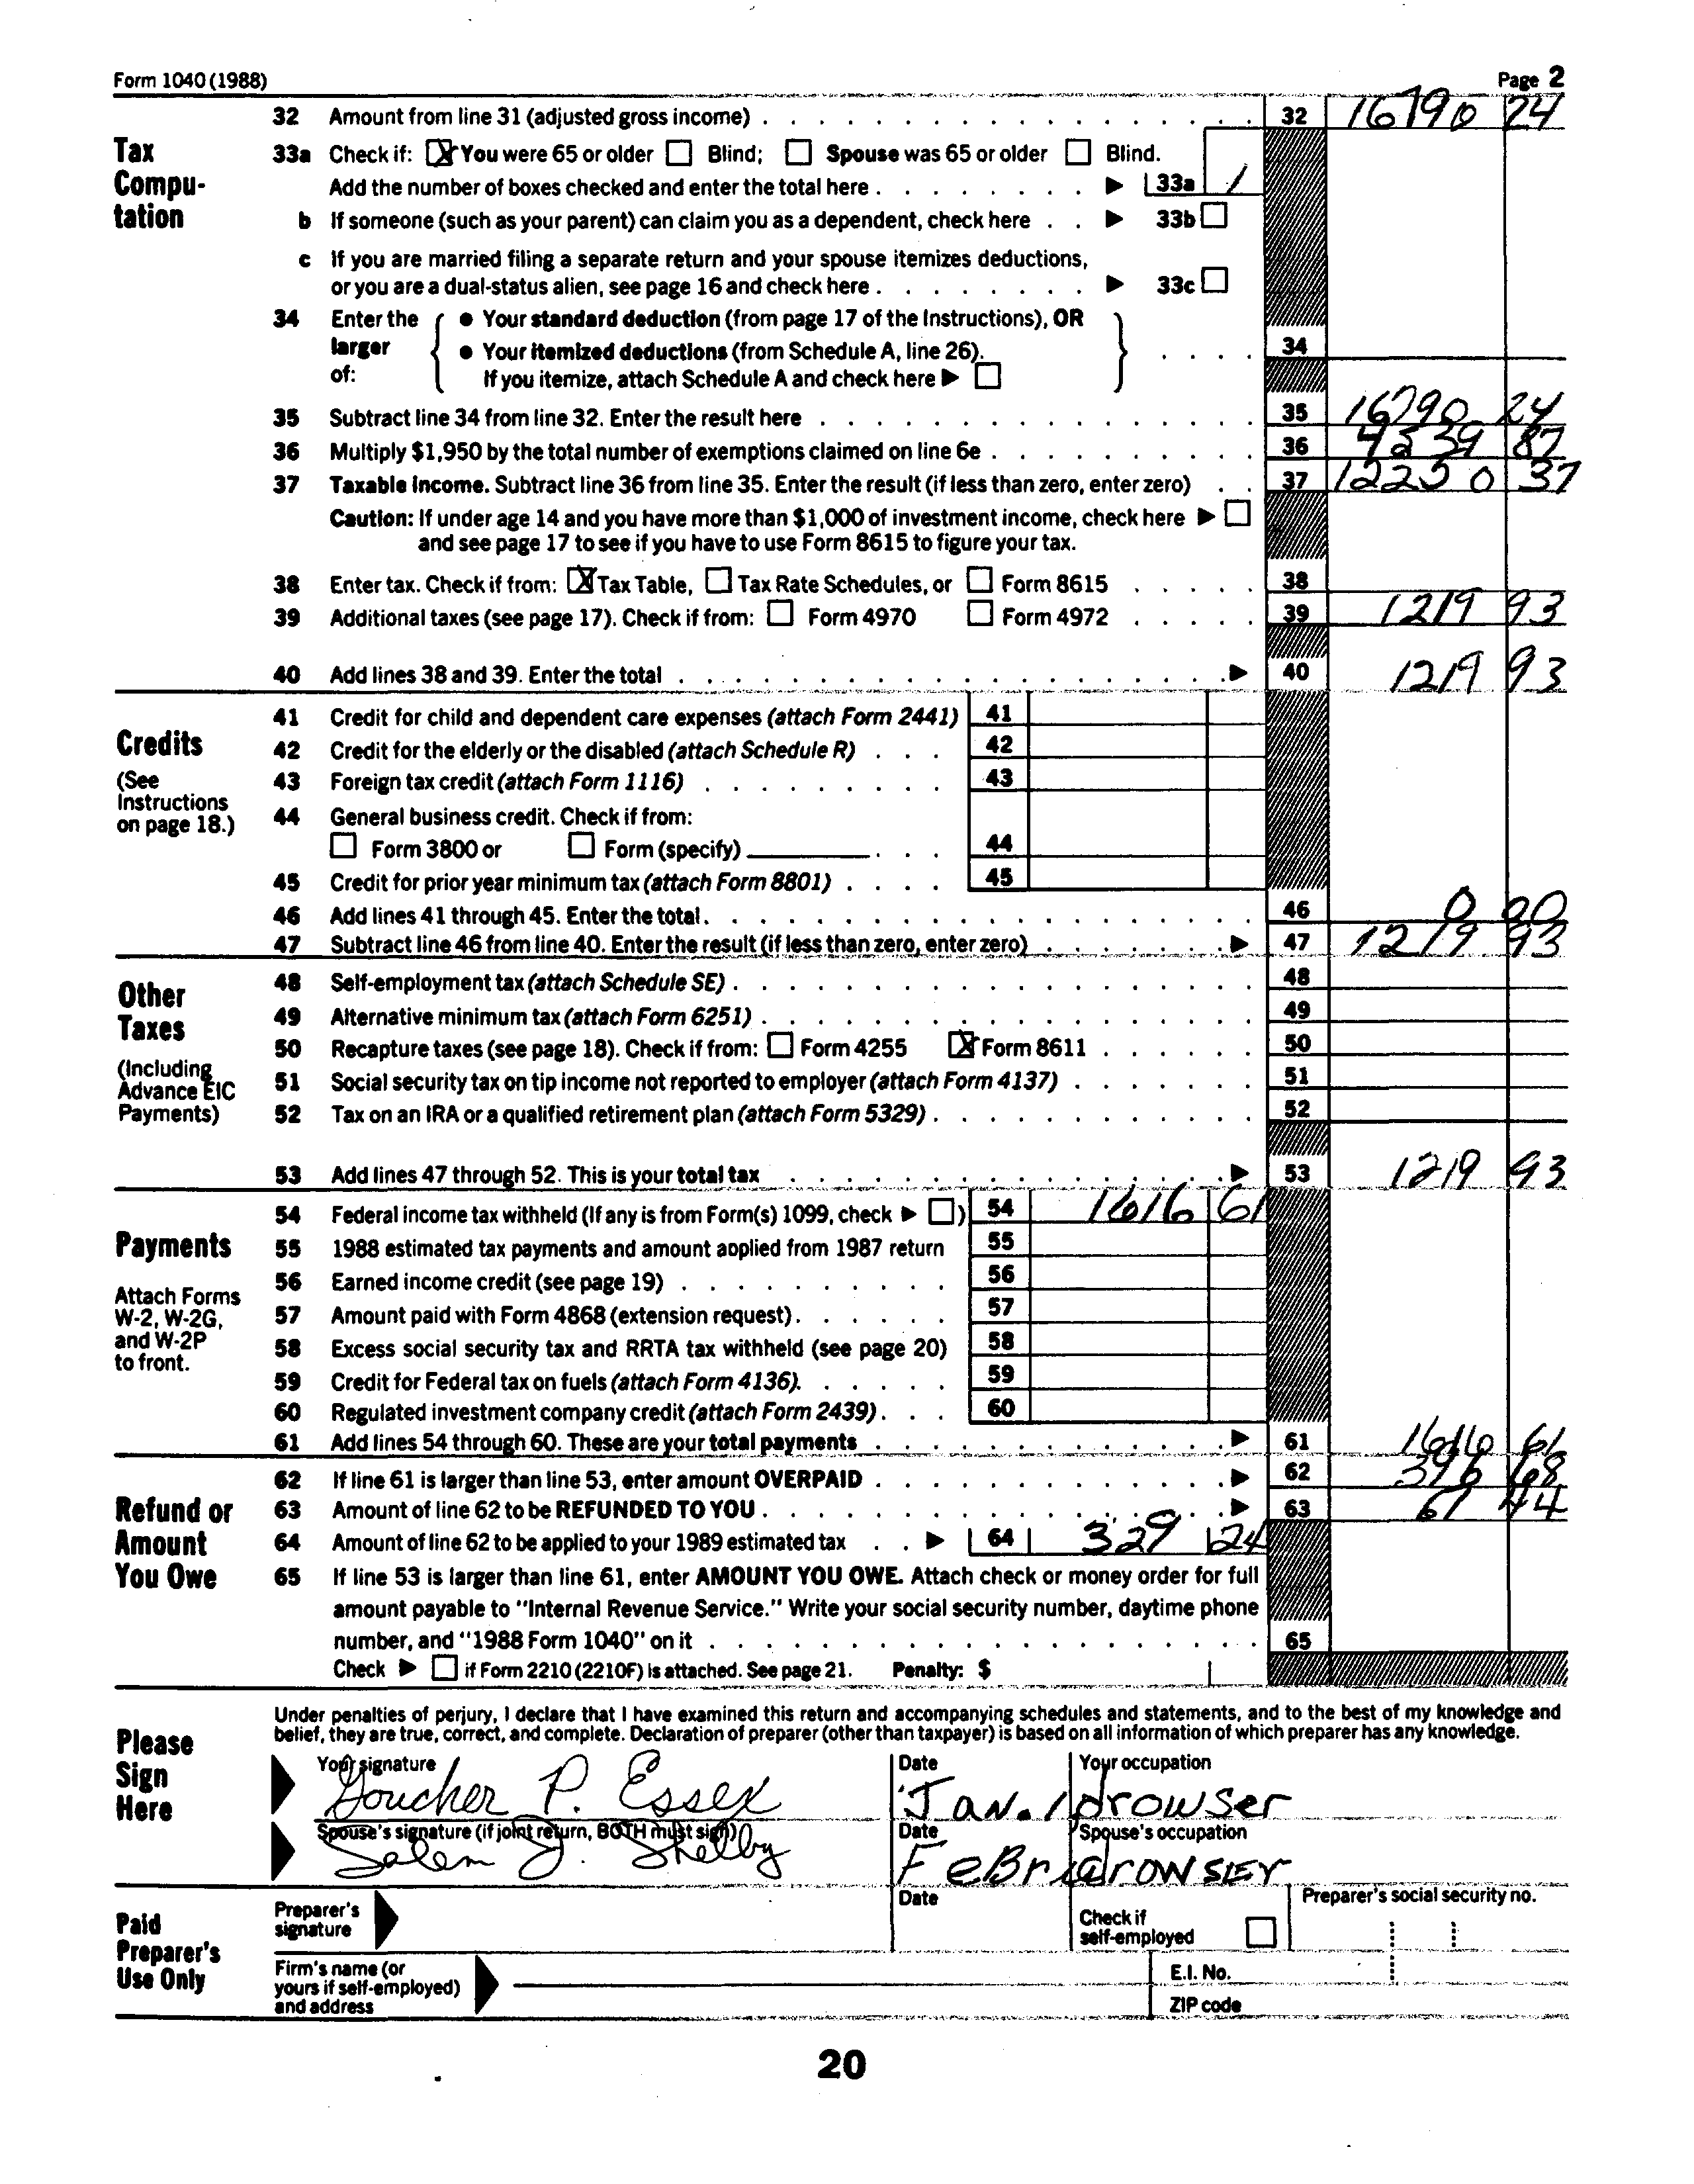 Form 1040 (1988)
Page 2
32 Amount from line 31 (adjusted gross income) 32 16790 24
Tax Compu-tation
33a Check if: X You were 65 or older Blind; Spouse was 65 or older Blind.
Add the number of boxes checked and enter the total here 33a 1
b If someone (such as your parent) can claim you as a dependent, check here 33b
c If you are married filing a separate return and your spouse itemizes deductions,
or you are a dual-status alien, see page 16 and check here 33c
34 Enter the larger of:
• Your standard deduction (from page 17 of the Instructions), OR
• Your itemized deductions (from Schedule A, line 26).
If you itemize, attach Schedule A and check here
34
35 Subtract line 34 from line 32. Enter the result here 35 16790 24
36 Multiply $1,950 by the total number of exemptions claimed on line 6e 36 4539 87
37 Taxable income. Subtract line 36 from line 35. Enter the result (if less than zero, enter zero) 37 12250 37
Caution: If under age 14 and you have more than $1,000 of investment income, check here
and see page 17 to see if you have to use Form 8615 to figure your tax.
38 Enter tax. Check if from: X Tax Table, Tax Rate Schedules, or Form 8615 38
39 Additional taxes (see page 17). Check if from: Form 4970 Form 4972 39 1219 93
40 Add lines 38 and 39. Enter the total 40 1219 93
Credits
(See Instructions on page 18.)
41 Credit for child and dependent care expenses (attach Form 2441) 41
42 Credit for the elderly or the disabled (attach Schedule R) 42
43 Foreign tax credit (attach Form 1116) 43
44 General business credit. Check if from:
Form 3800 or Form (specify) 44
45 Credit for prior year minimum tax (attach Form 8801) 45
46 Add lines 41 through 45. Enter the total. 46 0 00
47 Subtract line 46 from line 40. Enter the result (if less than zero, enter zero) 47 1219 93
Other Taxes
(Including Advance EIC Payments)
48 Self-employment tax (attach Schedule SE) 48
49 Alternative minimum tax (attach Form 6251) 49
50 Recapture taxes (see page 18). Check if from: Form 4255 X Form 8611 50
51 Social security tax on tip income not reported to employer (attach Form 4137) 51
52 Tax on an IRA or a qualified retirement plan (attach Form 5329) 52
53 Add lines 47 through 52. This is your total tax 53 1219 93
Payments
Attach Forms W-2, W-2G, and W-2P to front.
54 Federal income tax withheld (If any is from Form(s) 1099, check ) 54 1616 61
55 1988 estimated tax payments and amount applied from 1987 return 55
56 Earned income credit (see page 19) 56
57 Amount paid with Form 4868 (extension request) 57
58 Excess social security tax and RRTA tax withheld (see page 20) 58
59 Credit for Federal tax on fuels (attach Form 4136) 59
60 Regulated investment company credit (attach Form 2439) 60
61 Add lines 54 through 60. These are your total payments 61 1616 61
Refund or Amount You Owe
62 If line 61 is larger than line 53, enter amount OVERPAID 62 396 68
63 Amount of line 62 to be REFUNDED TO YOU 63 67 44
64 Amount of line 62 to be applied to your 1989 estimated tax 64 329 24
65 If line 53 is larger than line 61, enter AMOUNT YOU OWE. Attach check or money order for full
amount payable to "Internal Revenue Service." Write your social security number, daytime phone
number, and "1988 Form 1040" on it 65
Check if Form 2210 (2210F) is attached. See page 21. Penalty: $
Please Sign Here
Under penalties of perjury, I declare that I have examined this return and accompanying schedules and statements, and to the best of my knowledge and
belief, they are true, correct, and complete. Declaration of preparer (other than taxpayer) is based on all information of which preparer has any knowledge.
Your signature Date Your occupation
Goucher P. Essex Jan. 1 drowser
Spouse's signature (if joint return, BOTH must sign) Date Spouse's occupation
Salem J. Shelby
Paid Preparer's Use Only
Preparer's signature Date
Check if self-employed
Preparer's social security no.
Firm's name (or yours if self-employed) and address
E.I. No.
ZIP code
20